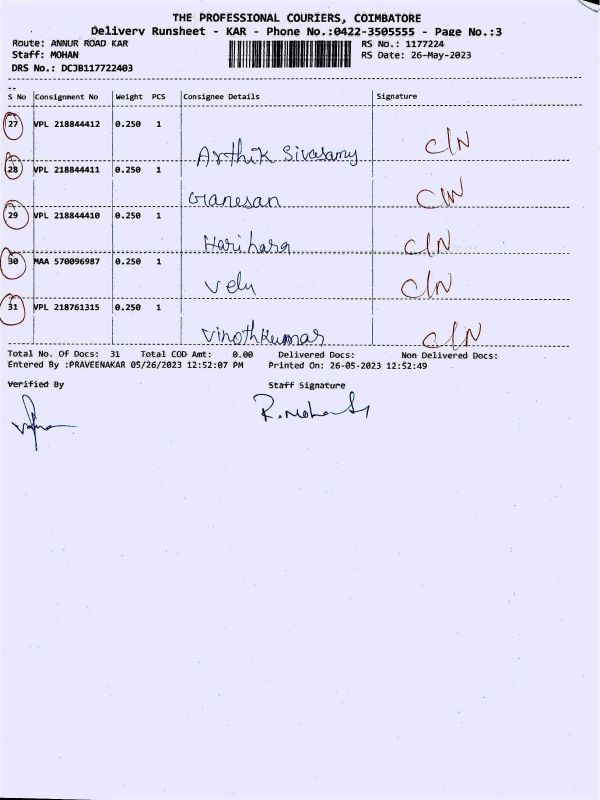 THE PROFESSIONAL COURIERS, COIMBATORE
Delivery Runsheet - KAR - Phone No.:0422-3505555 - Page No.:3
Route: ANNUR ROAD KAR RS No.: 1177224
Staff: MOHAN RS Date: 26-May-2023
DRS No.: DCJB117722403
S No Consignment No Weight PCS Consignee Details Signature
27 VPL 218844412 0.250 1
Arthik Sivasamy C/N
28 VPL 218844411 0.250 1
Ganesan C/N
29 VPL 218844410 0.250 1
Hari hara C/N
30 MAA 570096987 0.250 1
Velu C/N
31 VPL 218761315 0.250 1
Vinothkumar C/N
Total No. Of Docs: 31 Total COD Amt: 0.00 Delivered Docs: Non Delivered Docs:
Entered By :PRAVEENAKAR 05/26/2023 12:52:07 PM Printed On: 26-05-2023 12:52:49
Verified By Staff Signature